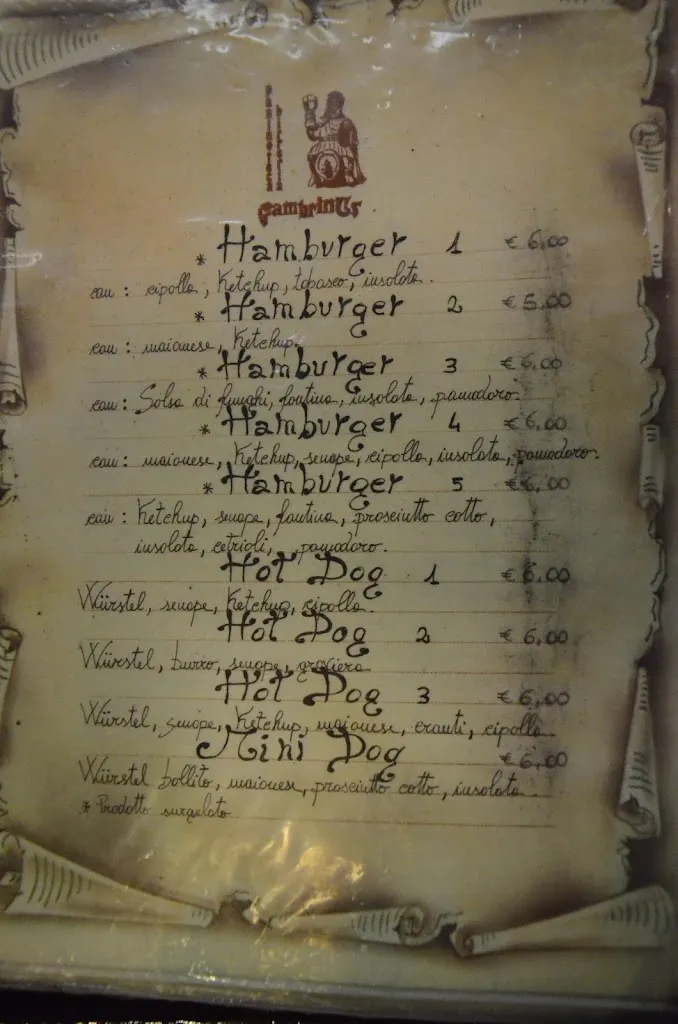 Paninoteca
Birreria
Gambrinus
* Hamburger 1 € 6,00
con : cipolla, Ketchup, tobasco, insalata.
* Hamburger 2 € 5,00
con : maionese, Ketchup.
* Hamburger 3 € 6,00
con : Salsa di funghi, fontina, insalata, pomodoro.
* Hamburger 4 € 6,00
con : maionese, Ketchup, senape, cipolla, insalata, pomodoro.
* Hamburger 5 € 6,00
con : Ketchup, senape, fontina, prosciutto cotto,
insalata, cetrioli, pomodoro.
Hot Dog 1 € 6,00
Würstel, senape, Ketchup, cipolla.
Hot Dog 2 € 6,00
Würstel, burro, senape, groviera
Hot Dog 3 € 6,00
Würstel, senape, Ketchup, maionese, crauti, cipolla.
Mini Dog € 6,00
Würstel bollito, maionese, prosciutto cotto, insalata.
* Prodotto surgelato